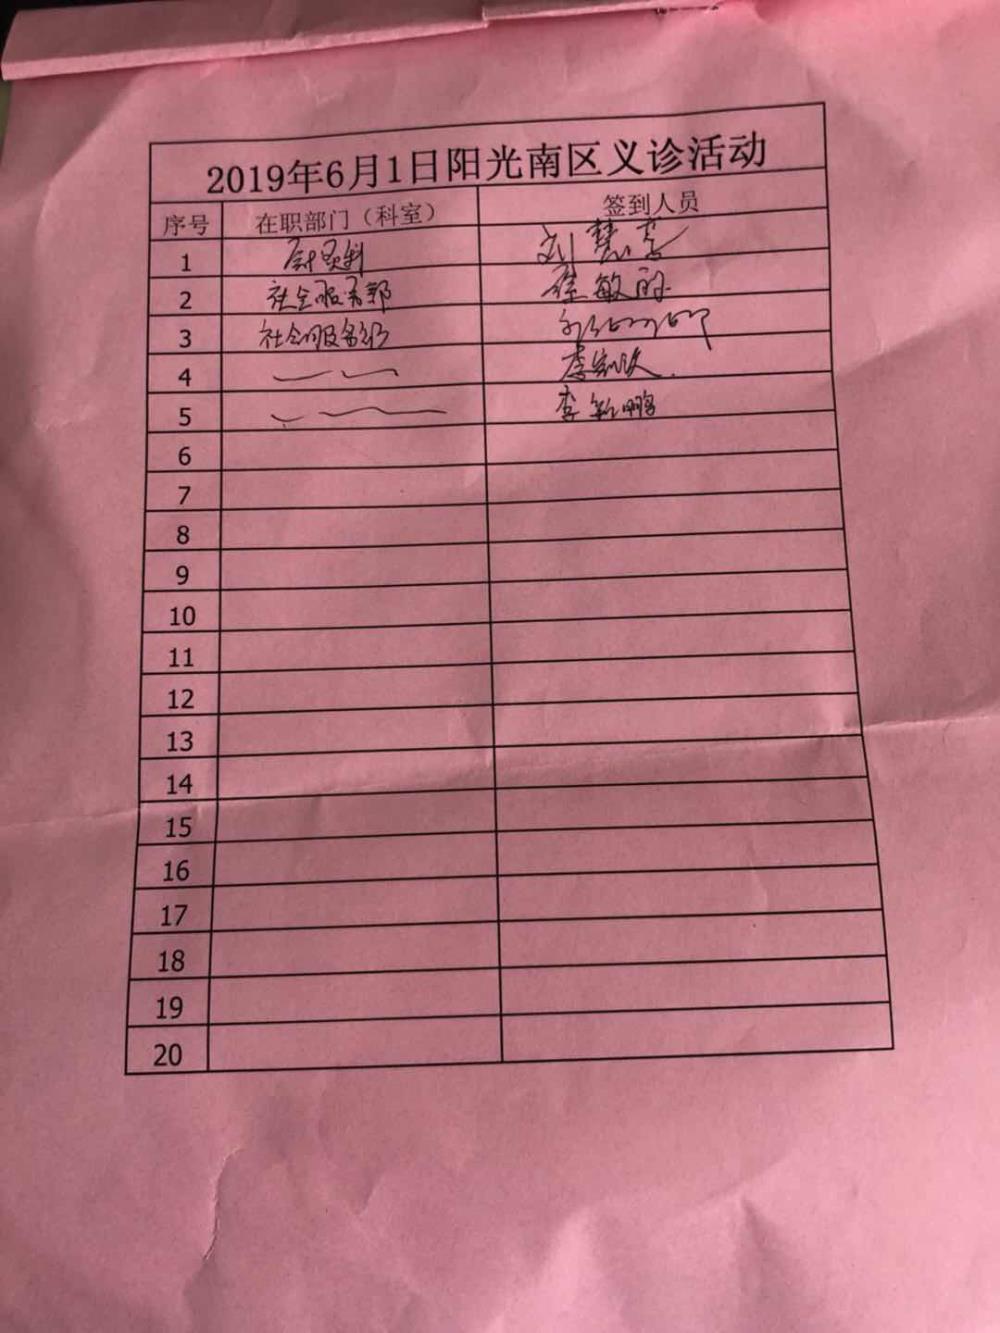 2019年6月1日阳光南区义诊活动
序号 在职部门（科室） 签到人员
1 刘慧
2 社会服务部 徐敏
3 社会服务部
4 李
5 李新鹏
6
7
8
9
10
11
12
13
14
15
16
17
18
19
20